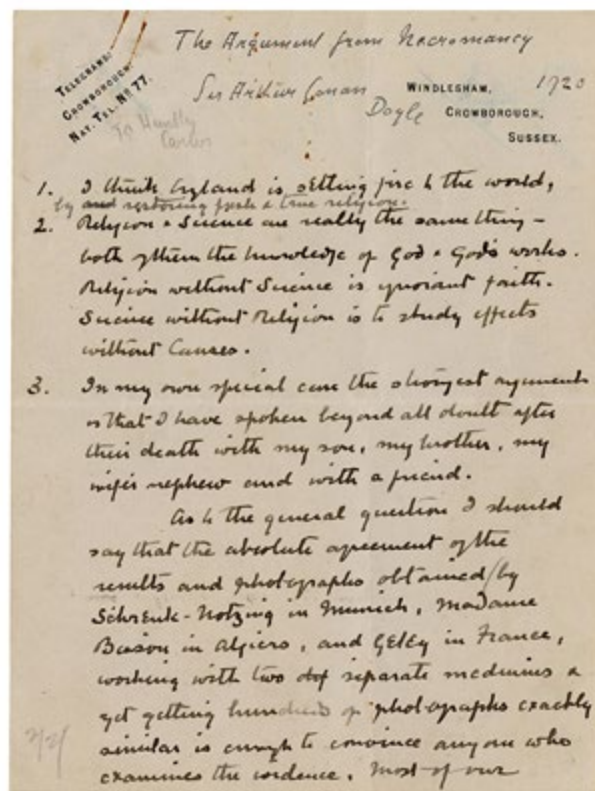 The Argument from Necromancy
TELEGRAMS:
CROWBOROUGH.
NAT. TEL. No 77.
Sir Arthur Conan
Doyle
WINDLESHAM,
CROWBOROUGH,
SUSSEX.
1920
To Huntly
Carter
1. I think England is setting fire to the world,
by and restoring fresh & true religion.
2. Religion & Science are really the same thing –
both of them the knowledge of God & God's works.
Religion without Science is ignorant faith.
Science without Religion is to study effects
without Causes.
3. In my own special case the strongest arguments
is that I have spoken beyond all doubt after
their death with my son, my brother, my
wife's nephew and with a friend.
As to the general question I should
say that the absolute agreement of the
results and photographs obtained by
Schrenk-Notzing in Munich, Madame
Bisson in Algiers, and Geley in France,
working with two separate mediums &
yet getting hundreds of photographs exactly
similar is enough to convince anyone who
examines the evidence. Most of our